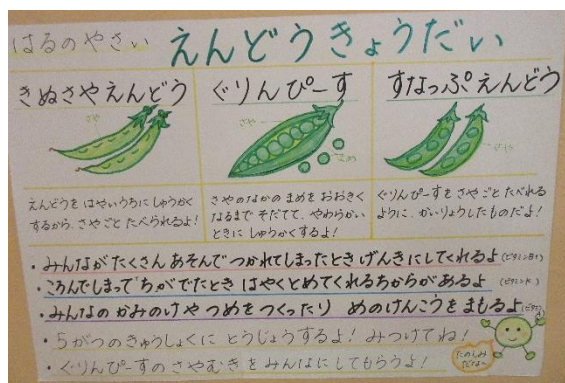 はるのやさい えんどうきょうだい
きぬさやえんどう
さや
えんどうを はやいうちに しゅうかく
するから、さやごと たべられるよ！
ぐりんぴーす
さや
まめ
さやのなかの まめを おおきく
なるまで そだてて、やわらかい
ときに しゅうかくするよ！
すなっぷえんどう
さや
ぐりんぴーすを さやごと たべれる
ように、かいりょうしたものだよ！
・みんながたくさん あそんで つかれてしまったとき げんきにしてくれるよ(ビタミンB1)
・ころんでしまって ちがでたとき はやくとめてくれるちからがあるよ (ビタミンK)
・みんなの かみのけや つめをつくったり めのけんこうをまもるよ(ビタミン
・5がつのきゅうしょくに とうじょうするよ！ みつけてね！
・ぐりんぴーすのさやむきをみんなにしてもらうよ！
たのしみ
だな〜